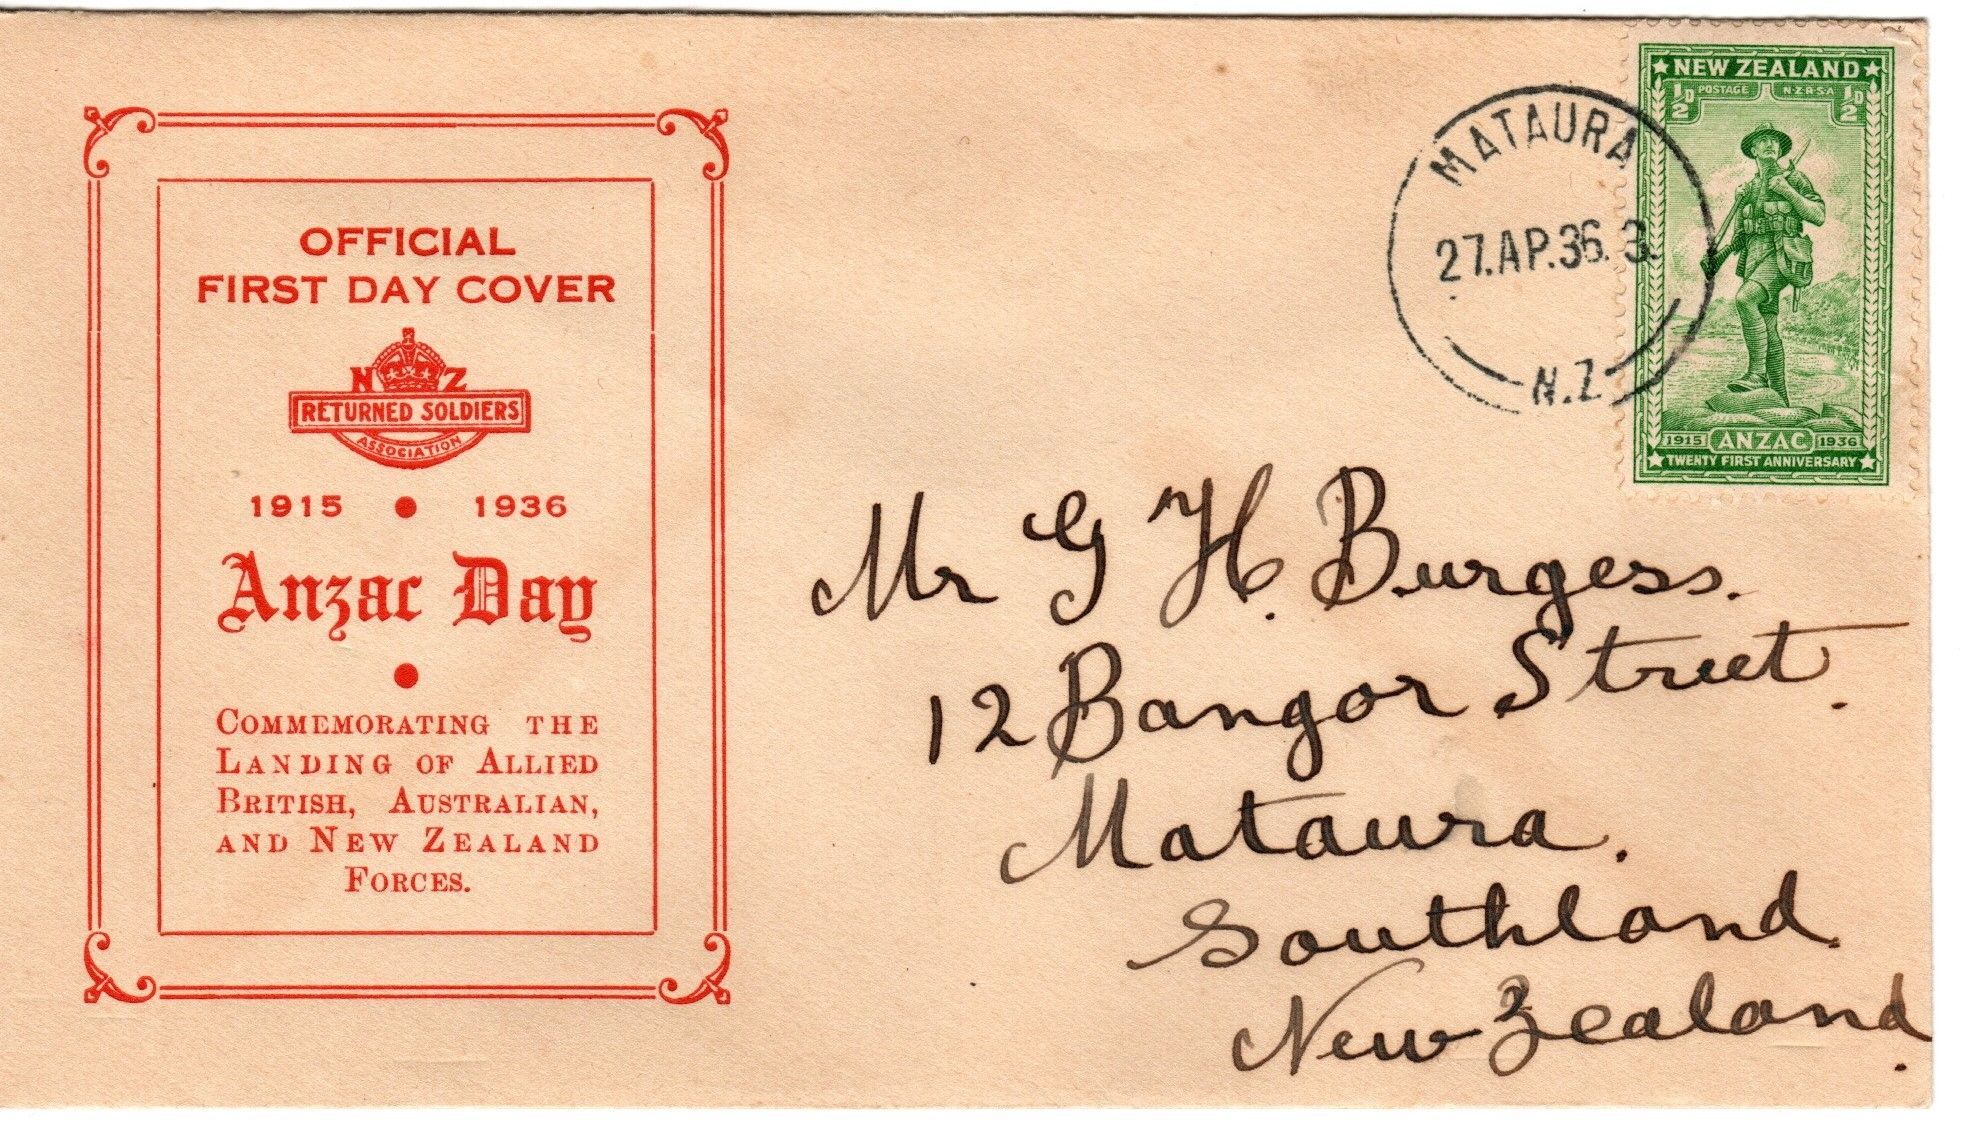 OFFICIAL
FIRST DAY COVER
N Z
RETURNED SOLDIERS
ASSOCIATION
1915 • 1936
Anzac Day
COMMEMORATING THE
LANDING OF ALLIED
BRITISH, AUSTRALIAN,
AND NEW ZEALAND
FORCES.
MATAURA
27.AP.36.3
N.Z
NEW ZEALAND
½D POSTAGE N.Z.R.S.A ½D
1915 ANZAC 1936
TWENTY FIRST ANNIVERSARY
Mr G H. Burgess.
12 Bangor Street.
Mataura.
Southland.
New Zealand.